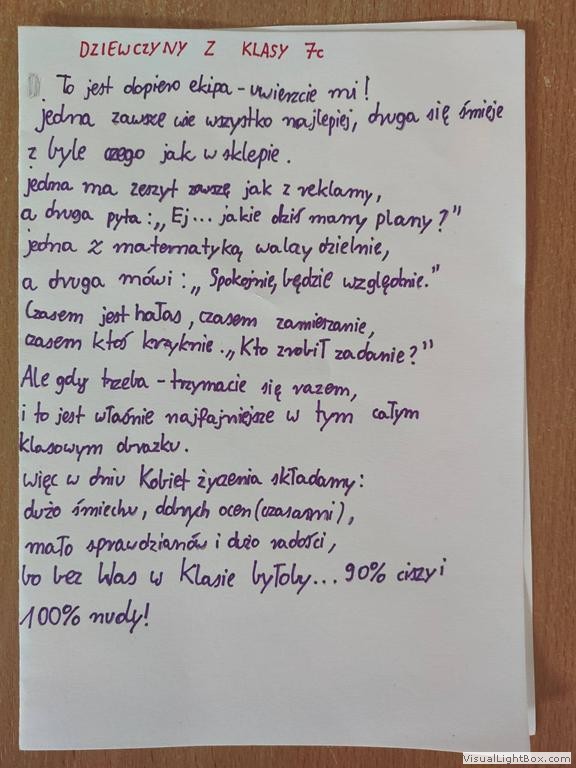 DZIEWCZYNY Z KLASY 7c
To jest dopiero ekipa - uwierzcie mi!
jedna zawsze wie wszystko najlepiej, druga się śmieje
z byle czego jak w sklepie.
jedna ma zeszyt zawsze jak z reklamy,
a druga pyta: „Ej... jakie dziś mamy plany?"
jedna z matematyką walczy dzielnie,
a druga mówi: „Spokojnie, będzie względnie."
Czasem jest hałas, czasem zamieszanie,
czasem ktoś krzyknie. „Kto zrobił zadanie?"
Ale gdy trzeba - trzymacie się razem,
i to jest właśnie najfajniejsze w tym całym
klasowym obrazku.
więc w dniu Kobiet życzenia składamy:
dużo śmiechu, dobrych ocen (czasami),
mało sprawdzianów i dużo radości,
bo bez Was w klasie byłoby... 90% ciszy i
100% nudy!
VisualLightBox.com